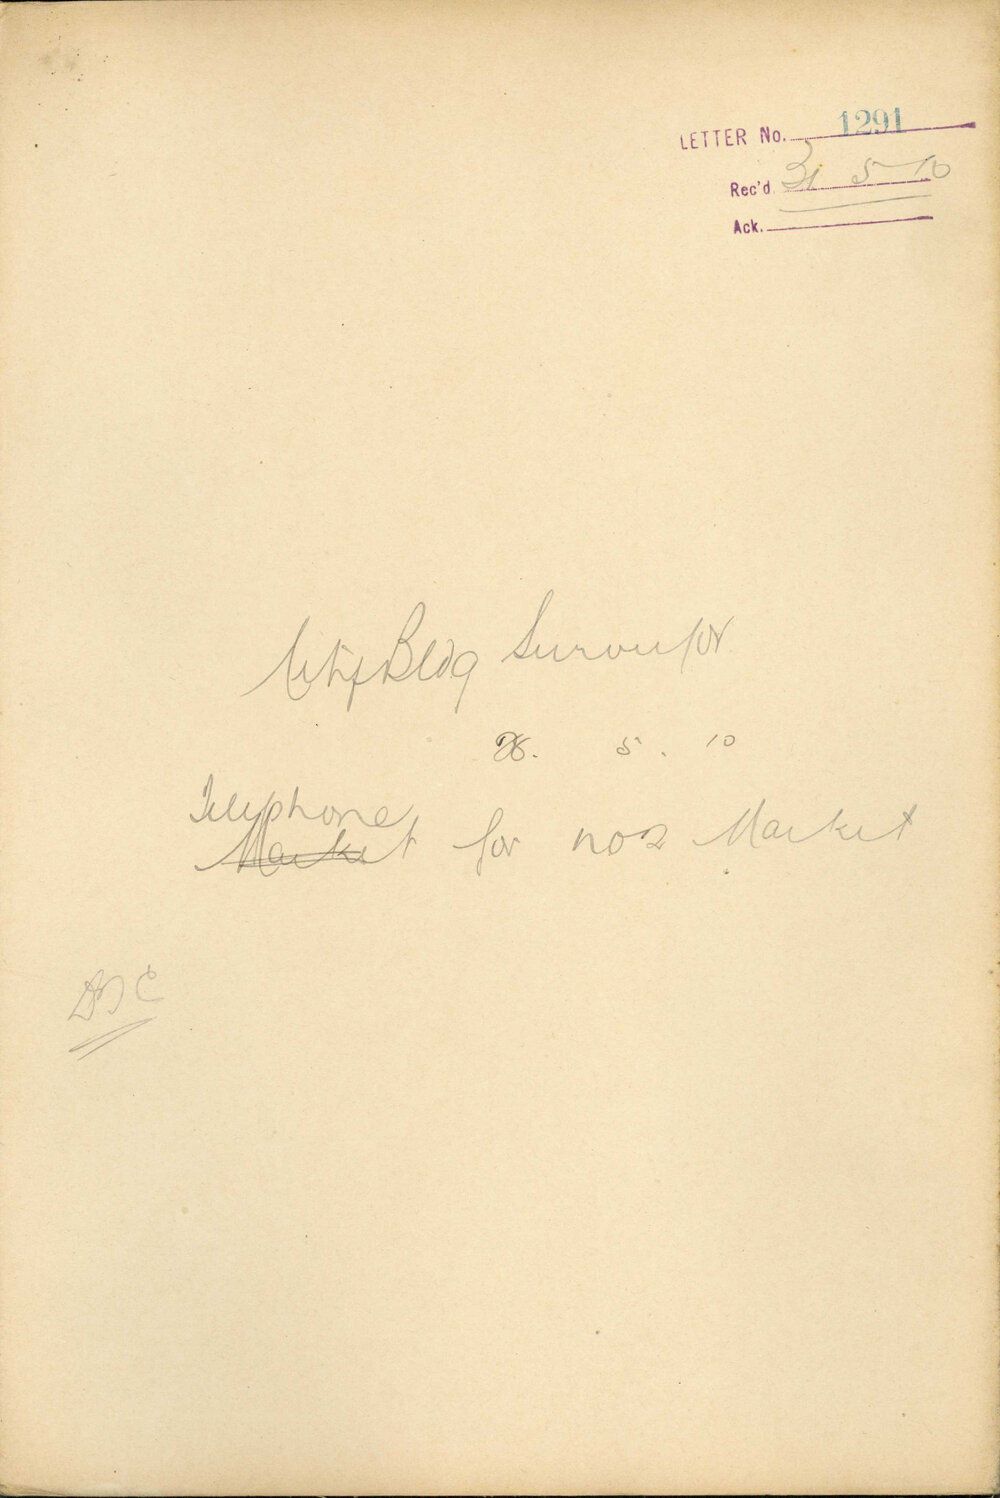 LETTER No. 1291
Rec'd. 31 5 10
Ack.
City Bldg Surveyor
28. 5. 10
Telephone
Market for no 2 Market